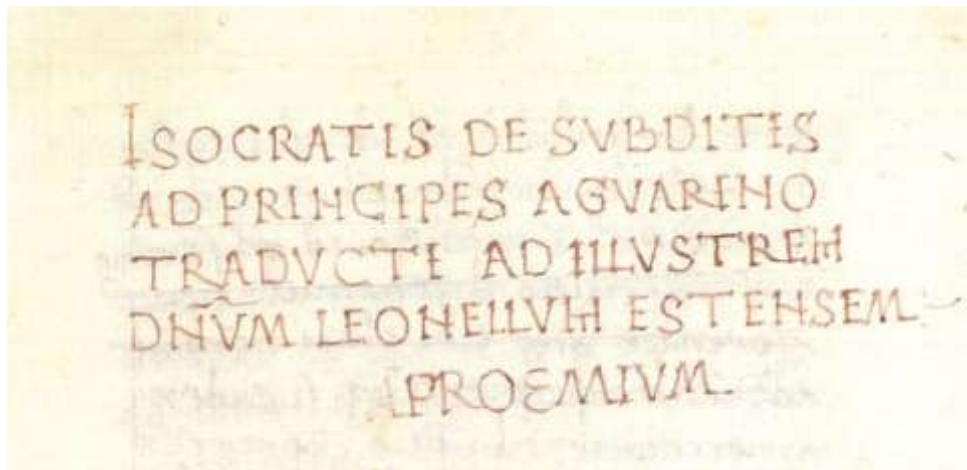 ISOCRATIS DE SVBDITIS
AD PRINCIPES AGVARINO
TRADVCTI AD ILLVSTREM
DÑVM LEONELLVM ESTENSEM
PROEMIVM.